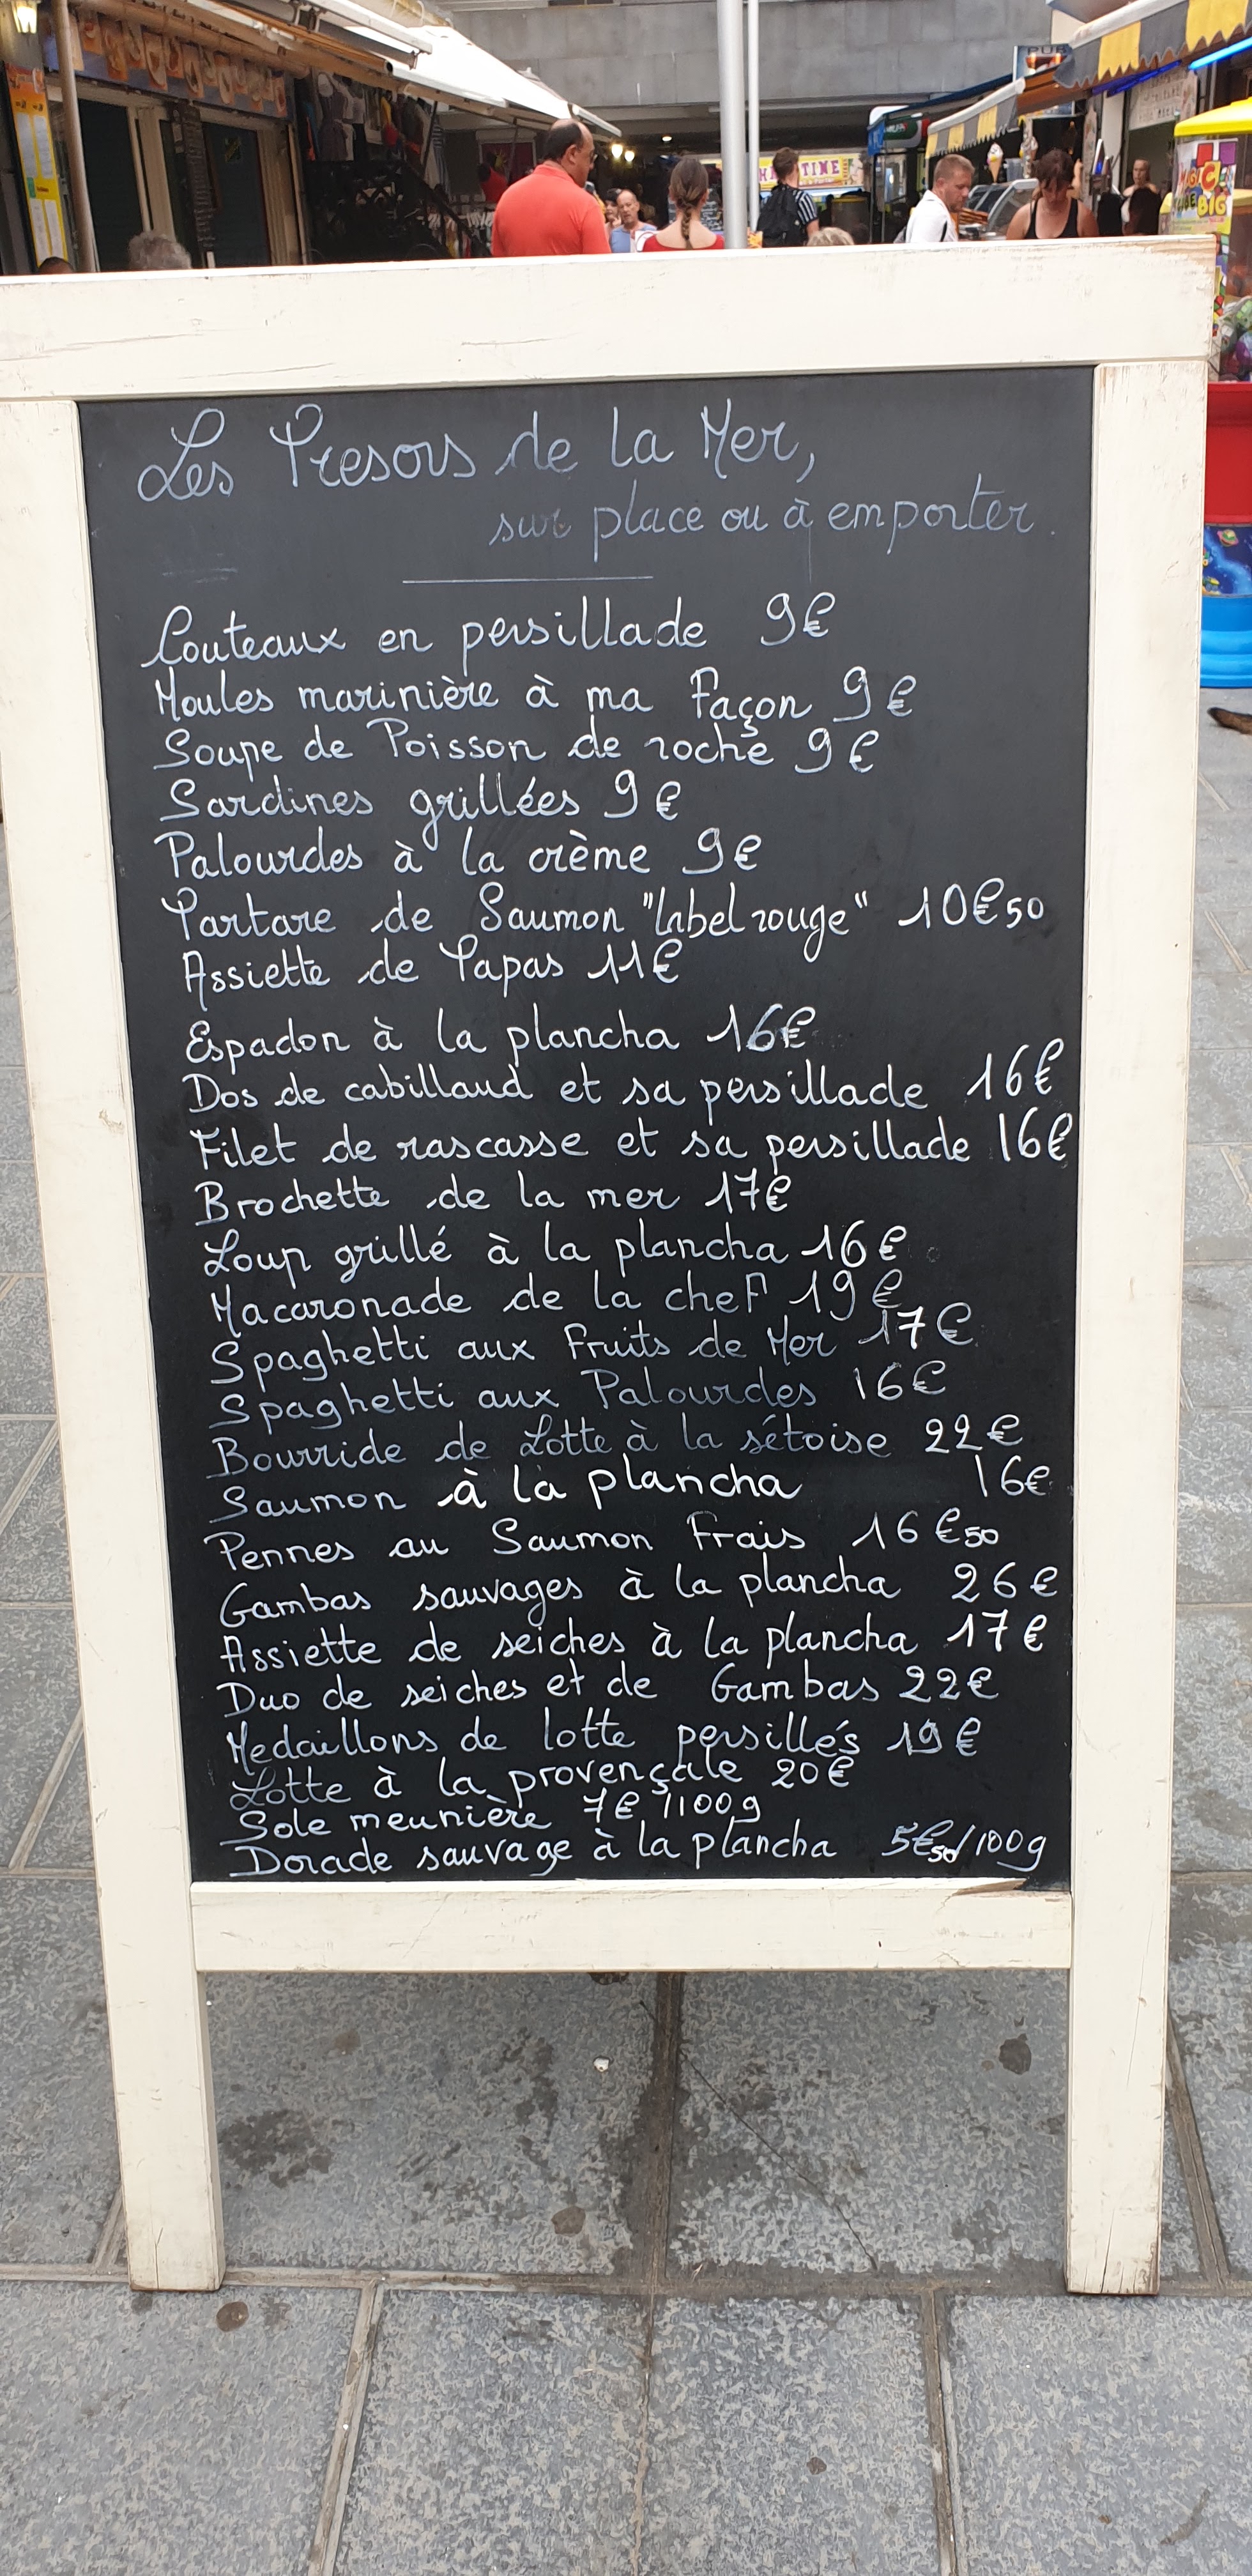 PUB
MAGIC
CUBE
BIG
Les Tresors de la Mer,
sur place ou à emporter.
Couteaux en persillade 9€
Moules marinière à ma Façon 9€
Soupe de Poisson de roche 9€
Sardines grillées 9€
Palourdes à la crème 9€
Tartare de Saumon "label rouge" 10€50
Assiette de Tapas 11€
Espadon à la plancha 16€
Dos de cabillaud et sa persillade 16€
Filet de rascasse et sa persillade 16€
Brochette de la mer 17€
Loup grillé à la plancha 16€
Macaronade de la cheF 19€
Spaghetti aux Fruits de Mer 17€
Spaghetti aux Palourdes 16€
Bourride de Lotte à la sétoise 22€
Saumon à la plancha 16€
Pennes au Saumon Frais 16€50
Gambas sauvages à la plancha 26€
Assiette de seiches à la plancha 17€
Duo de seiches et de Gambas 22€
Medaillons de lotte persillés 19€
Lotte à la provençale 20€
Sole meunière 7€/100g
Dorade sauvage à la plancha 5€50/100g